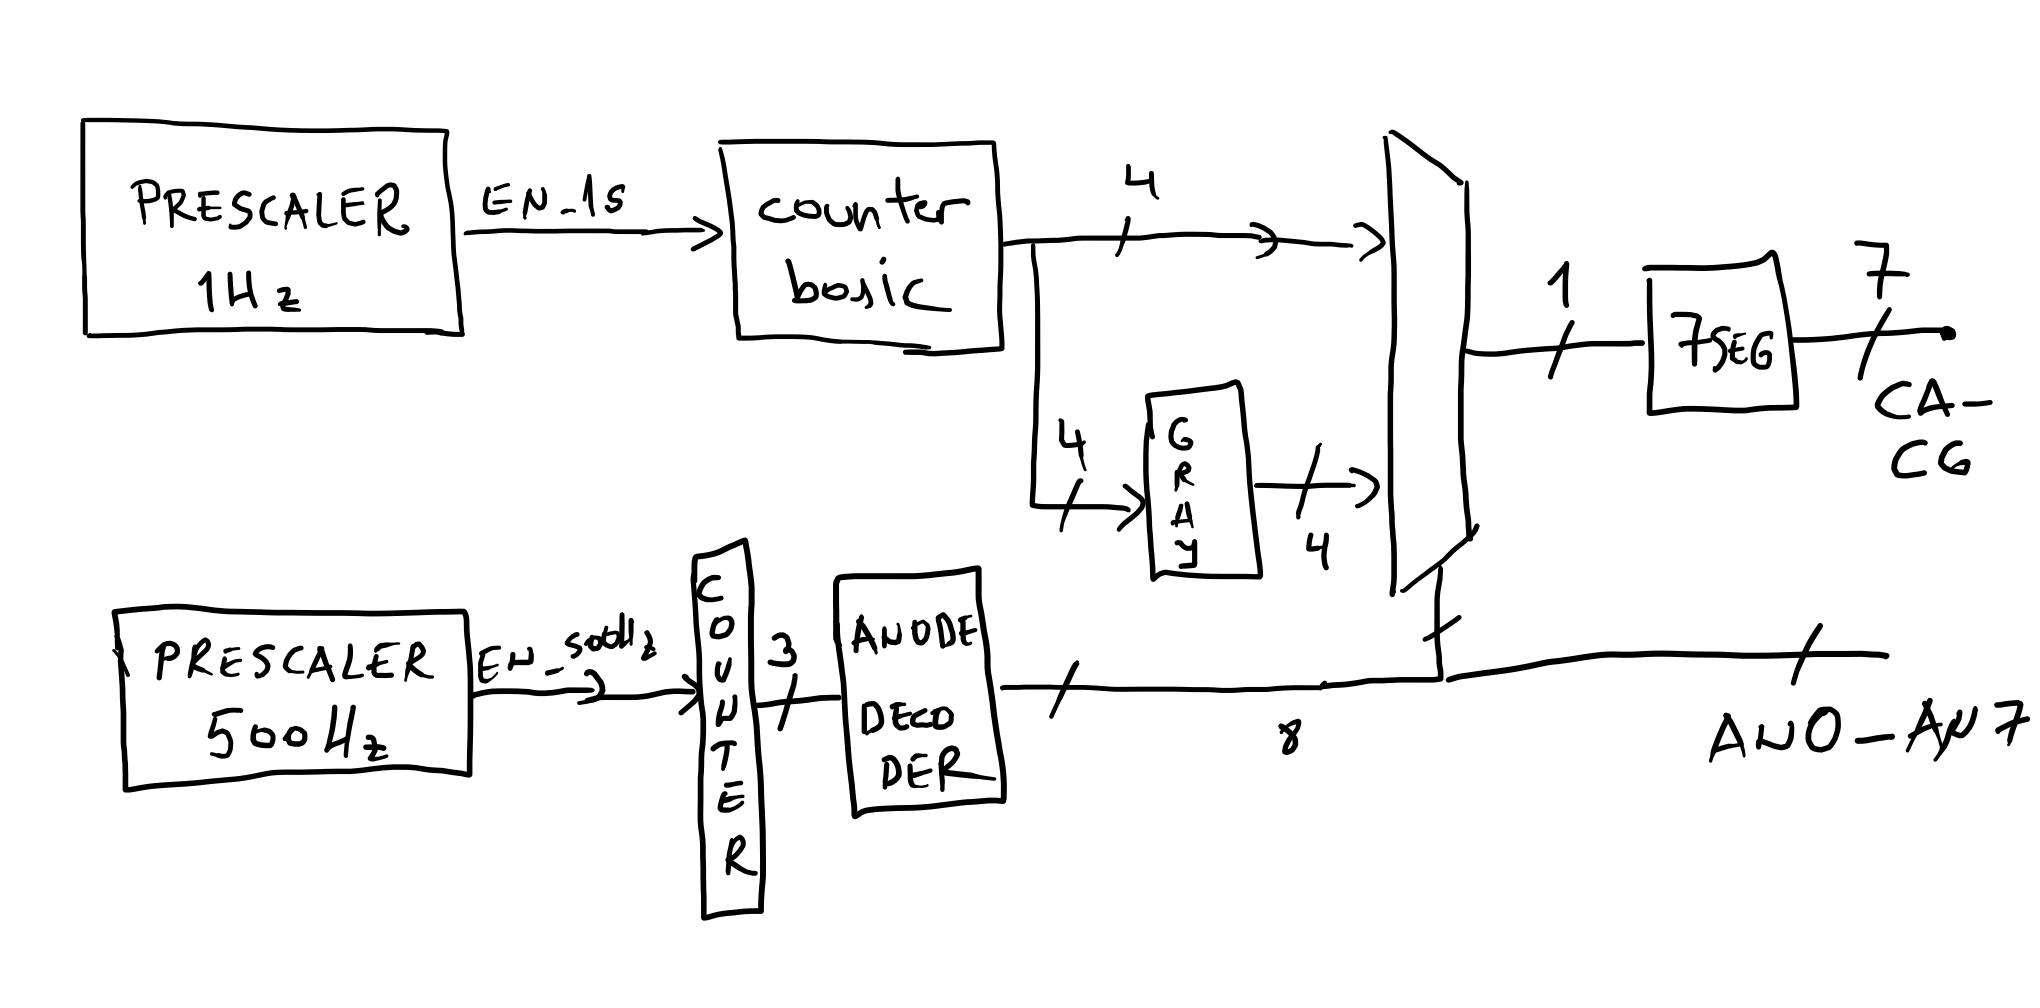 PRESCALER
1Hz
EN_1s
counter
basic
4
4
GRAY
4
1
7SEG
7
CA-
CG
PRESCALER
500Hz
EN_500Hz
COUNTER
3
ANODE
DECO
DER
8
AN0-AN7